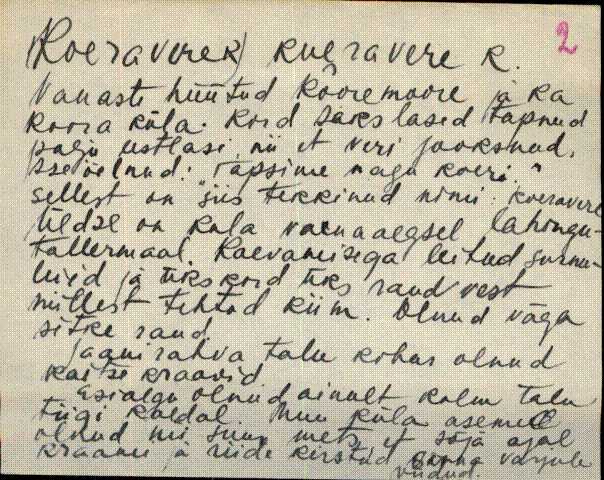 2
(Koeravere k) Koeravere k.
Vanasti hüütud Kõoremoore ja ka
Koora küla. Kord sakslased tapnud
palju estlasi, nii et veri jooksnud,
öelnud: "Tapsime nagu koeri."
Sellest on siis tekkinud nimi: Koeravere
Üldse on küla vaenaaegsel lahingu-
tallermaal. Kaevamisega leitud surnu-
luid ja ükskord üks raud vest
millest tehtud küim. Olnud väga
sitke raud.
Jaanirahva talu kohas olnud
kaitse kraavid.
Esialgu olnud ainult kolm talu
tiigi kaldal. Muu küla asemel
olnud nii suur mets et sõja ajal
kraami ja riide kirstud sinna varjule
viidud.